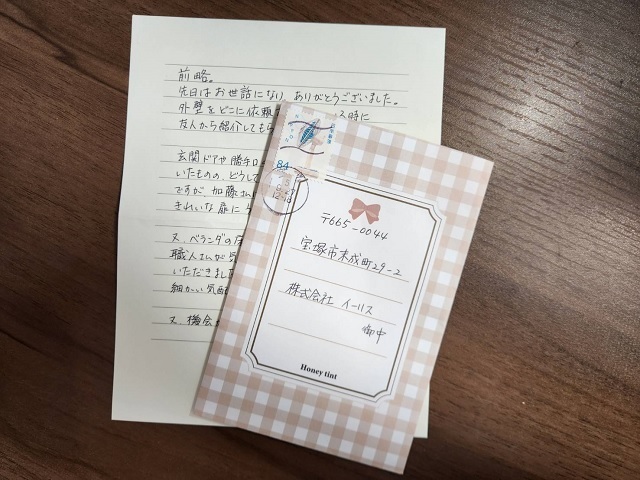 前略。
先日はお世話になり、ありがとうございました。
外壁をどこに依頼
る時に
友人から紹介してもら
玄関ドアや勝手口
いたものの、どうして
ですが、加藤さん
きれいな扉に
又、ベランダの床
職人さんが
いただきまし
細かい気配
又、機会が
84
12-18
〒665-0044
宝塚市末成町29-2
株式会社 イーリス
御中
Honey tint